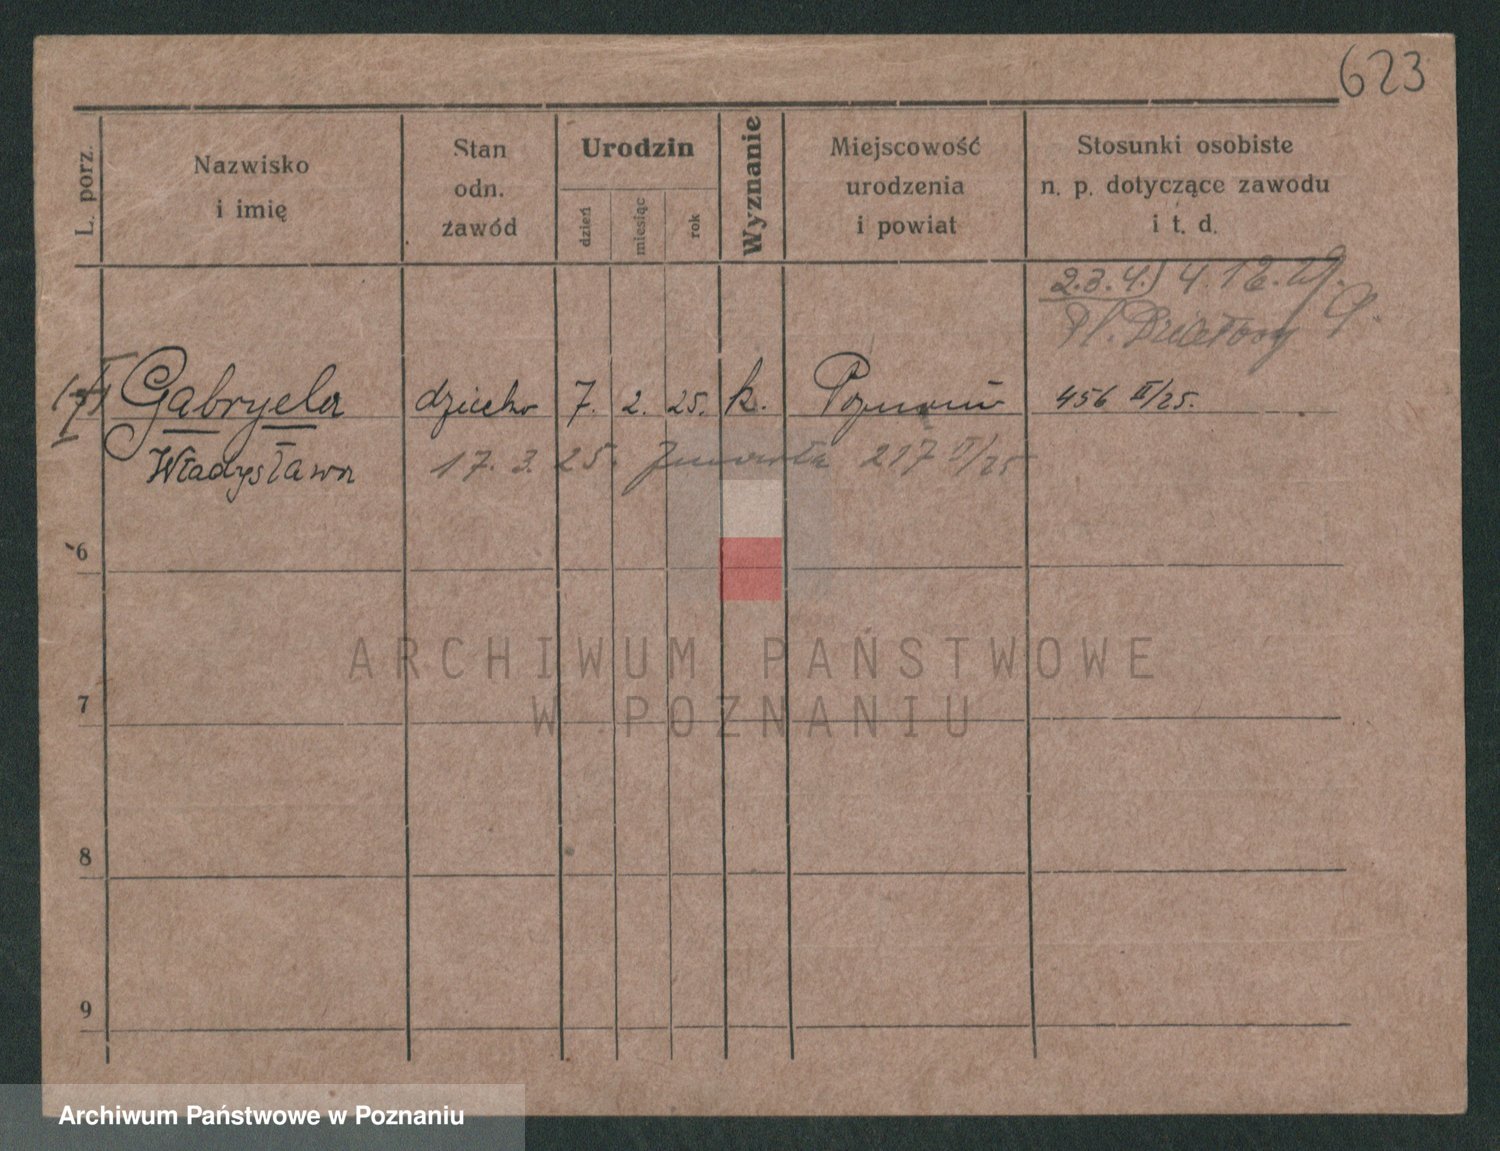 623
L. porz.
Nazwisko
i imię
Stan
odn.
zawód
Urodzin
dzień
miesiąc
rok
Wyznanie
Miejscowość
urodzenia
i powiat
Stosunki osobiste
n. p. dotyczące zawodu
i t. d.
2.3.4.) 4.12.29.
Pl.
Gabryela dziecko 7. 2. 25. k. Poznań 456 II/25.
Władysława 17. 3. 25. zmarła 217 II/25
6
7
8
9
ARCHIWUM PAŃSTWOWE
W POZNANIU
Archiwum Państwowe w Poznaniu